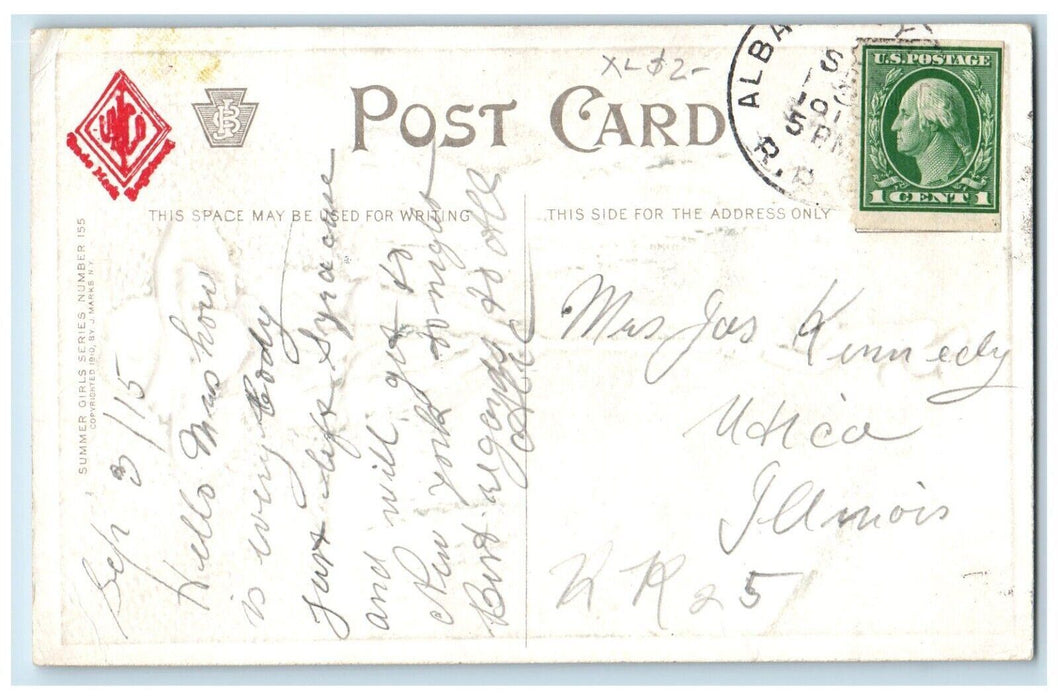 XL $2-
POST CARD
ALBA
S
191
5 PM
R.P.
U.S. POSTAGE
1 CENT 1
THIS SPACE MAY BE USED FOR WRITING
THIS SIDE FOR THE ADDRESS ONLY
SUMMER GIRLS SERIES, NUMBER 155
COPYRIGHTED 1910, BY J. MARKS N.Y.
Sep 3/15
Hello Mrs how
is every body
Just left Syracuse
and will get to
New york to night
Best regards to all
Mrs Jas Kennedy
Utica
Illinois
R R 25